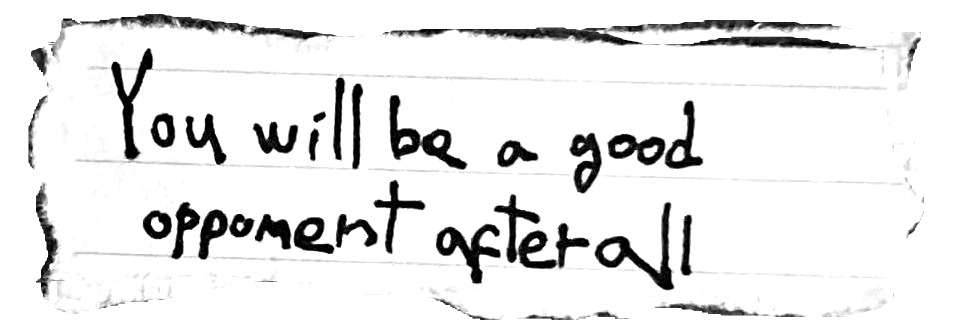 You will be a good
opponent after all